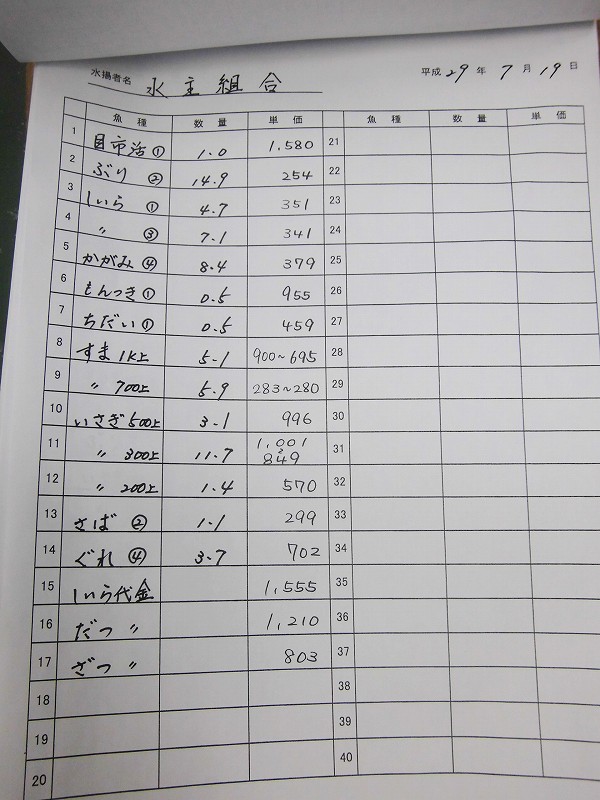 水揚者名 水主組合 平成 29 年 7 月 19 日
魚種 数量 単価 魚種 数量 単価
1 目市活① 1.0 1,580 21
2 ぶり ② 14.9 254 22
3 しいら ① 4.7 351 23
4 〃 ③ 7.1 341 24
5 かがみ④ 8.4 379 25
6 もんつき① 0.5 955 26
7 ちだい① 0.5 459 27
8 すま 1K上 5.1 900~695 28
9 〃 700上 5.9 283~280 29
10 いさぎ500上 3.1 996 30
11 〃 300上 11.7 1,001~849 31
12 〃 200上 1.4 570 32
13 さば ② 1.1 299 33
14 ぐれ ④ 3.7 702 34
15 しいら代金 1,555 35
16 だつ 〃 1,210 36
17 ざつ 〃 803 37
18 38
19 39
20 40